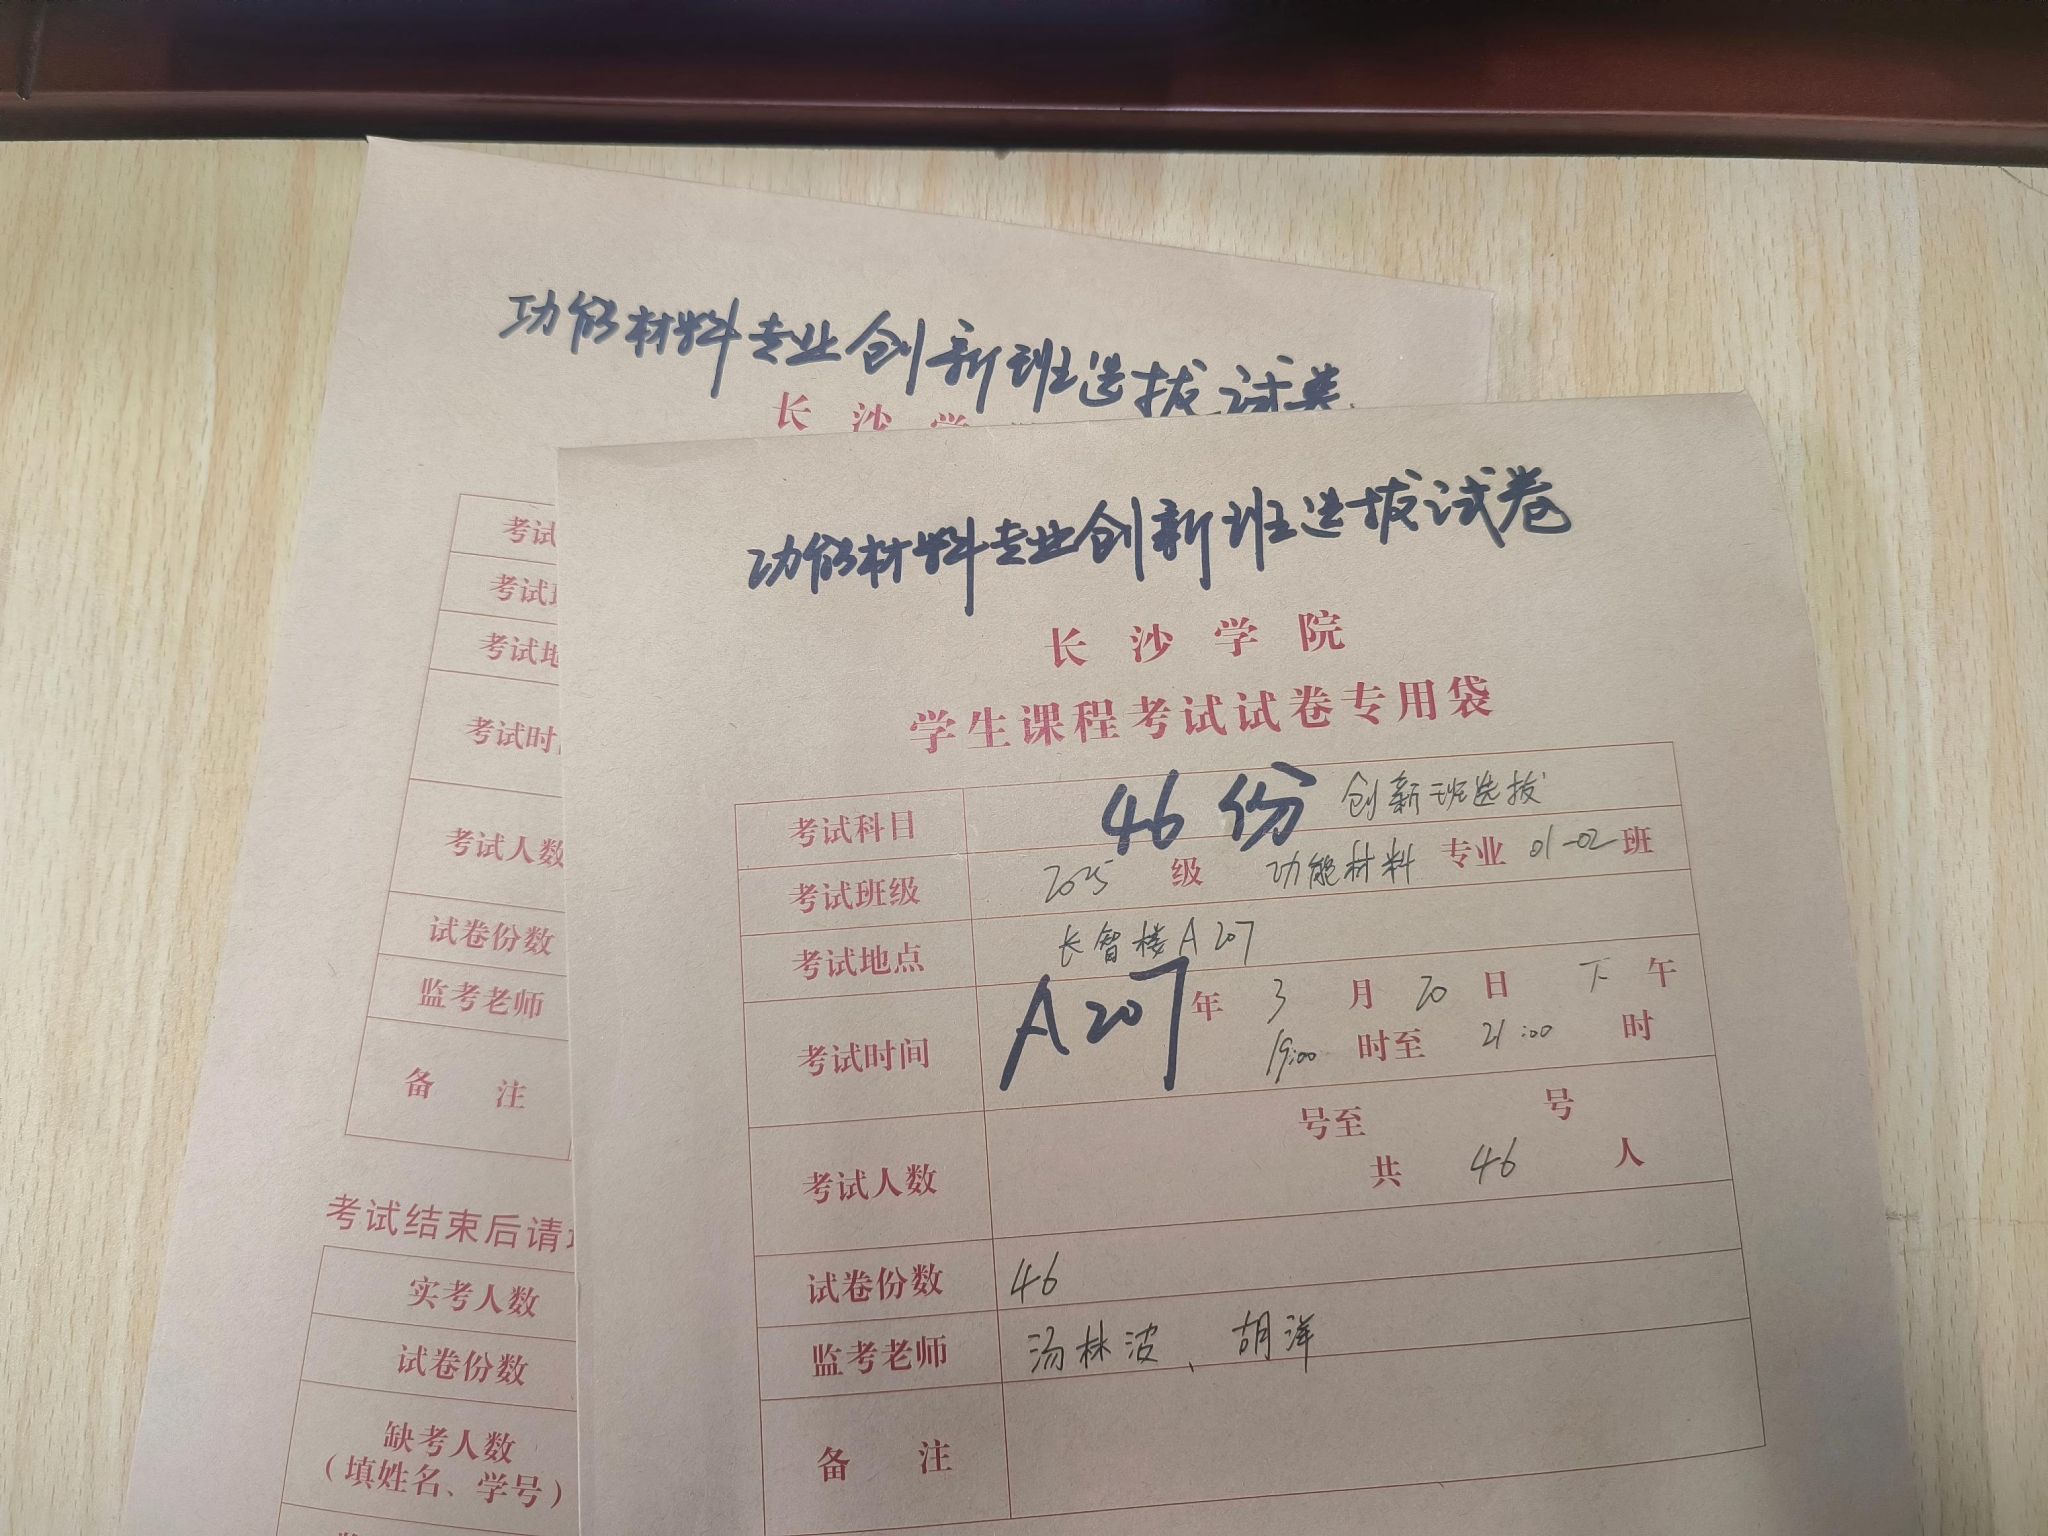 功能材料专业创新班选拔试卷
长沙学
考试
考试
考试地
考试时
考试人数
试卷份数
监考老师
备 注
考试结束后请
实考人数
试卷份数
缺考人数
（填姓名、学号）
功能材料专业创新班选拔试卷
长沙学院
学生课程考试试卷专用袋
考试科目 46份 创新班选拔
考试班级 2025 级 功能材料 专业 01-02 班
考试地点 长智楼A207
考试时间 A207 年 3 月 20 日 下 午
19:00 时至 21:00 时
号至 号
考试人数 共 46 人
试卷份数 46
监考老师 汤林波、胡洋
备 注